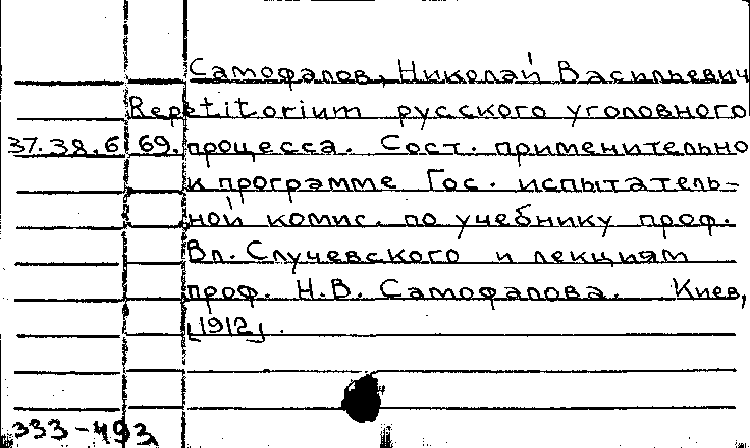 Самофалов, Николай Васильевич
Repetitorium русского уголовного
37.38.6 69. процесса. Сост. применительно
к программе Гос. испытатель-
ной комис. по учебнику проф.
Вл. Случевского и лекциям
проф. Н.В. Самофалова. Киев,
[1912].
333-493